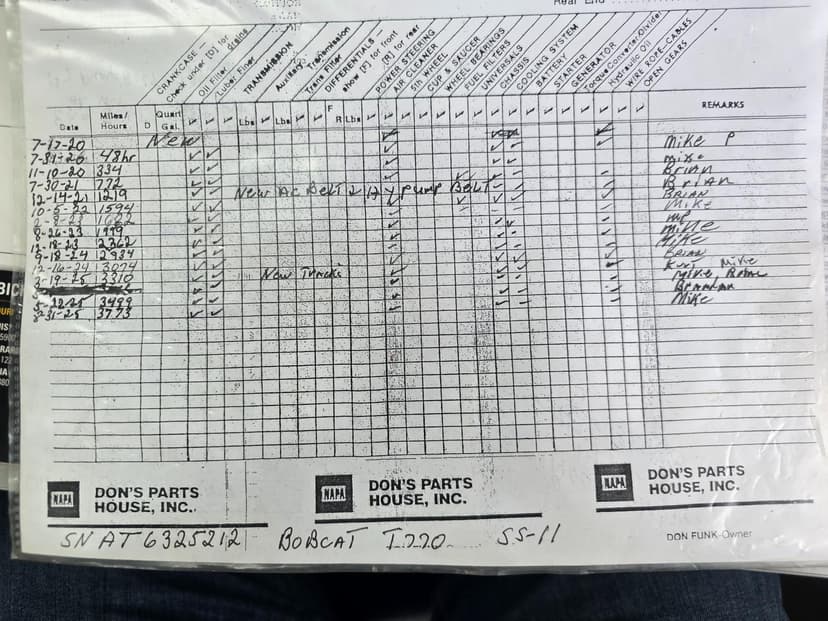 Rear End
CRANKCASE —
Check under [D] for drains
Oil Filter
Luber Finer
TRANSMISSION
Auxiliary Transmission
Trans Filter
DIFFERENTIALS
show [F] for front
[R] for rear
POWER STEERING
AIR CLEANER
5th WHEEL
CUP & SAUCER
WHEEL BEARINGS
FUEL FILTERS
UNIVERSALS
CHASSIS
COOLING SYSTEM
BATTERY
STARTER
GENERATOR
Torque-Converter-Divider
Hydraulic Oil
WIRE ROPE-CABLES
OPEN GEARS
Date Miles/Hours D Quart Gal. Lbs Lbs F R Lbs REMARKS
7-17-20 New Mike P
7-31-20 48hr Mike
11-10-20 334 Brian
7-30-21 772 New AC Belt & pump Belt Brian
12-14-21 1219 BRIAN
10-5-22 1594 Mike
1622 MP
8-26-23 1999 Mike
12-18-23 2362 Mike
9-18-24 2934 Brian
12-16-24 3074 Kurt Mike
3-19-25 3310 New Tracks Mike, Brian
3499 Brennan
8-31-25 3773 Mike
NAPA DON'S PARTS HOUSE, INC.
NAPA DON'S PARTS HOUSE, INC.
NAPA DON'S PARTS HOUSE, INC.
SN AT6325212 BOBCAT T770 SS-11
DON FUNK-Owner